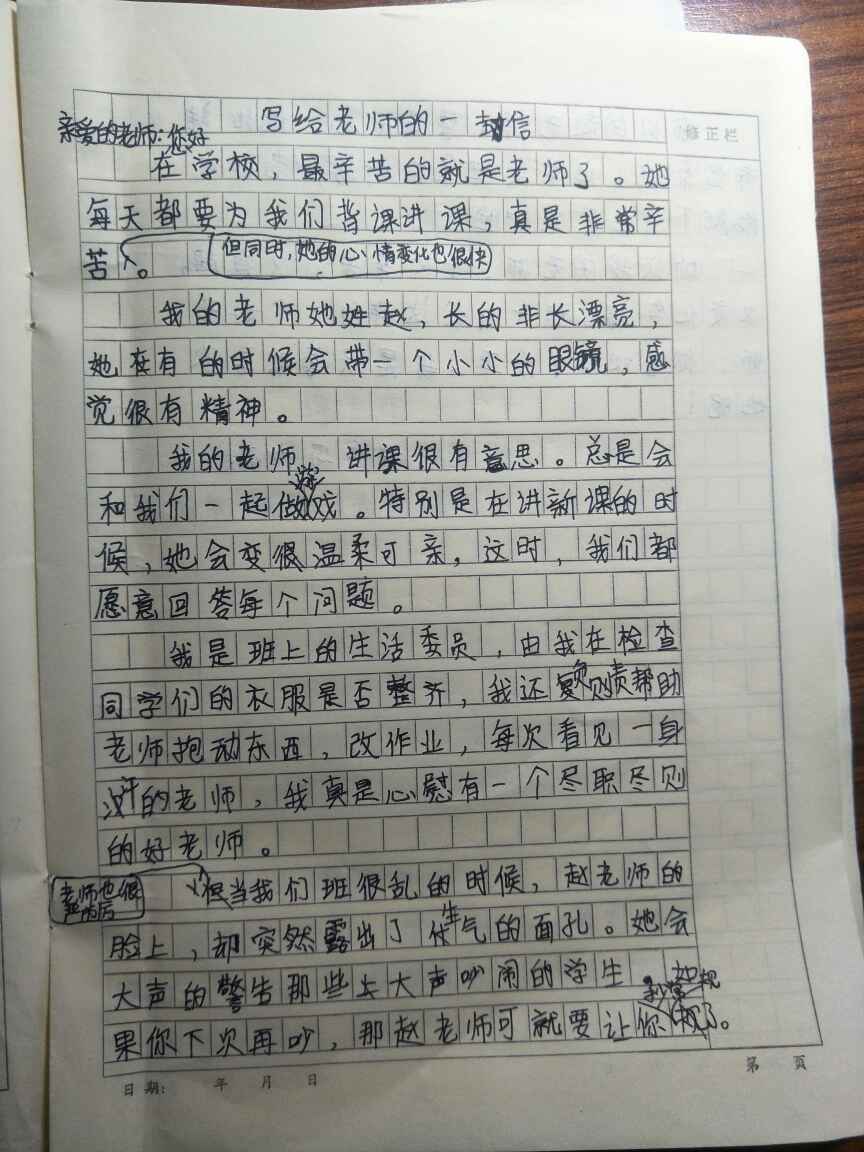 写给老师的一封信
修正栏
亲爱的老师:您好
在学校，最辛苦的就是老师了。她
每天都要为我们背课讲课，真是非常辛
苦。
但同时，她的心情变化也很快
我的老师她姓赵，长的非长漂亮，
她在有的时候会带一个小小的眼镜，感
觉很有精神。
我的老师 讲课很有意思。总是会
和我们一起做游戏。特别是在讲新课的时
候，她会变很温柔可亲，这时，我们都
愿意回答每个问题。
我是班上的生活委员，由我在检查
同学们的衣服是否整齐，我还负责帮助
老师抱动东西，改作业，每次看见一身
汗的老师，我真是心慰有一个尽职尽则
的好老师。
老师也很严厉
但当我们班很乱的时候，赵老师的
脸上，却突然露出了生气的面孔。她会
大声的警告那些大声吵闹的学生，如
果你下次再吵，那赵老师可就要让你抄常规了。
日期: 年 月 日
第 页